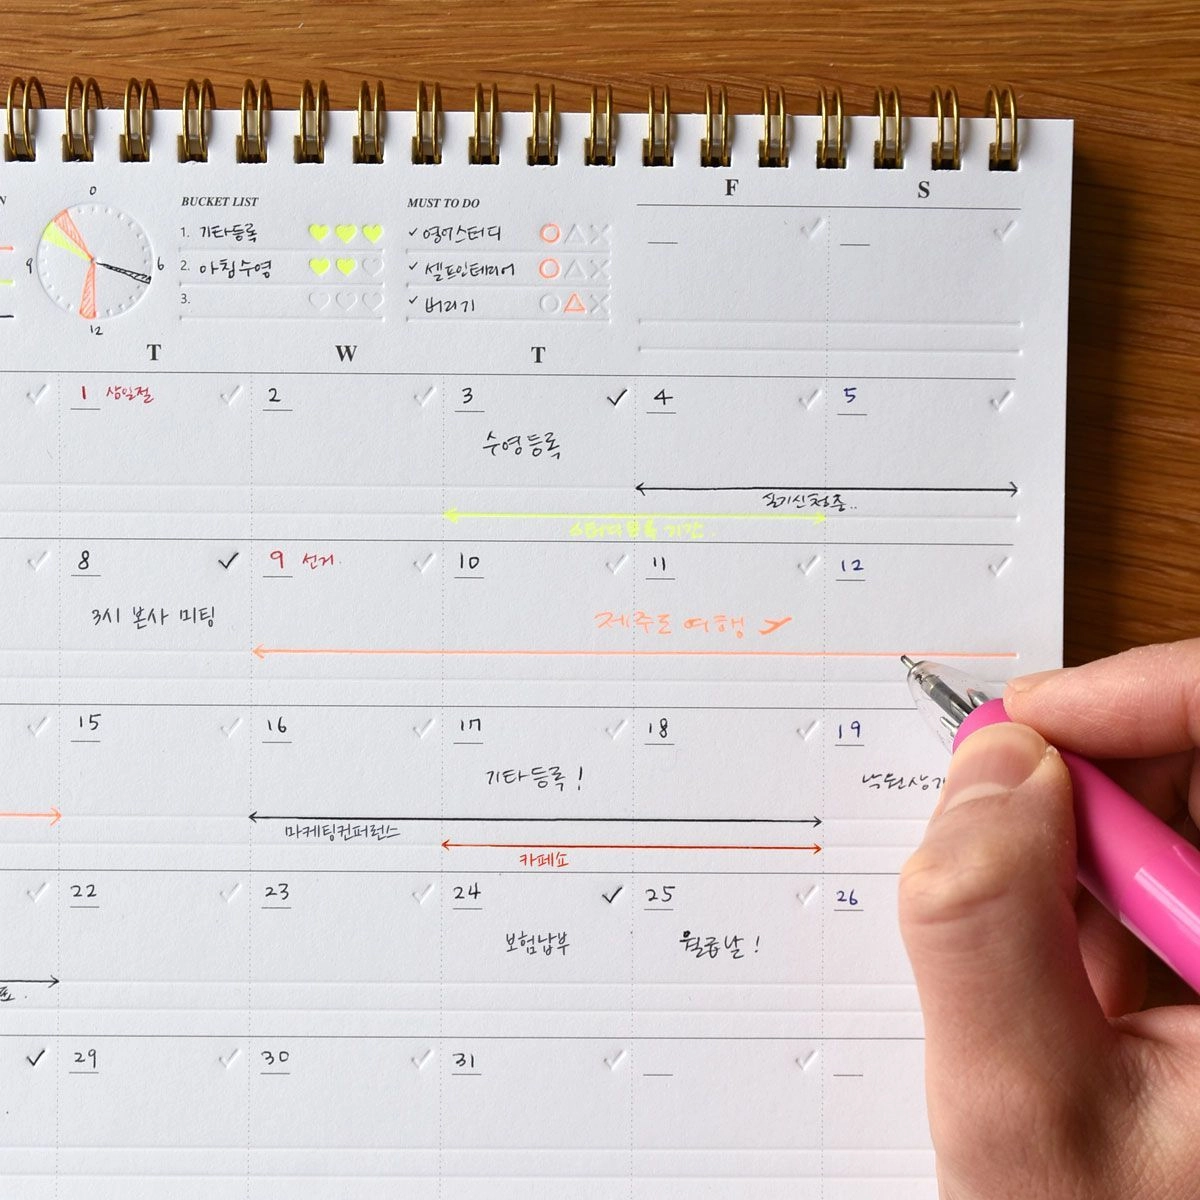 N
0
9
6
12
BUCKET LIST
1. 기타등록
2. 아침수영
3.
MUST TO DO
영어스터디
셀프인테리어
버리기
F S
T W T
1 삼일절 2 3 4 5
수영등록
실기신청중..
스터디등록 기간
8 9 선거. 10 11 12
3시 본사 미팅
제주도 여행
15 16 17 18 19
기타등록!
낙원상가
마케팅컨퍼런스
카페쇼
22 23 24 25 26
보험납부 월급날!
29 30 31